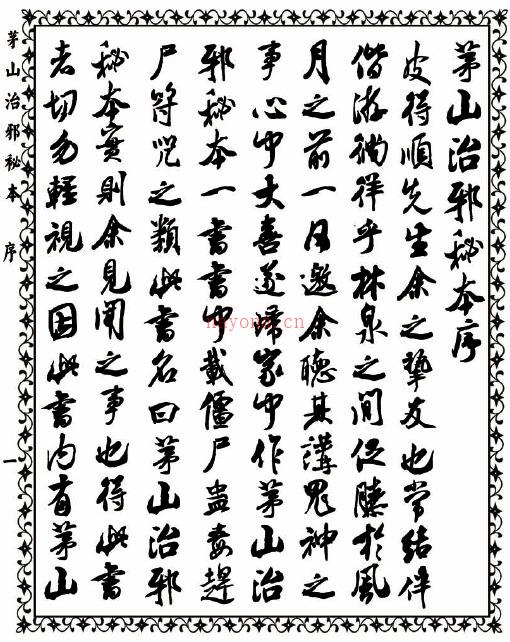 茅山治邪秘本序
皮得順先生余之摯友也常結伴
偕游徜徉乎林泉之間促膝於風
月之前一日邀余聽其講鬼神之
事心中大喜遂歸家中作茅山治
邪秘本一書書中載僵尸蛊毒趕
尸符咒之類此書名曰茅山治邪
秘本實則余見聞之事也得此書
者切勿輕視之因此書內有茅山
茅山治邪秘本 序 一